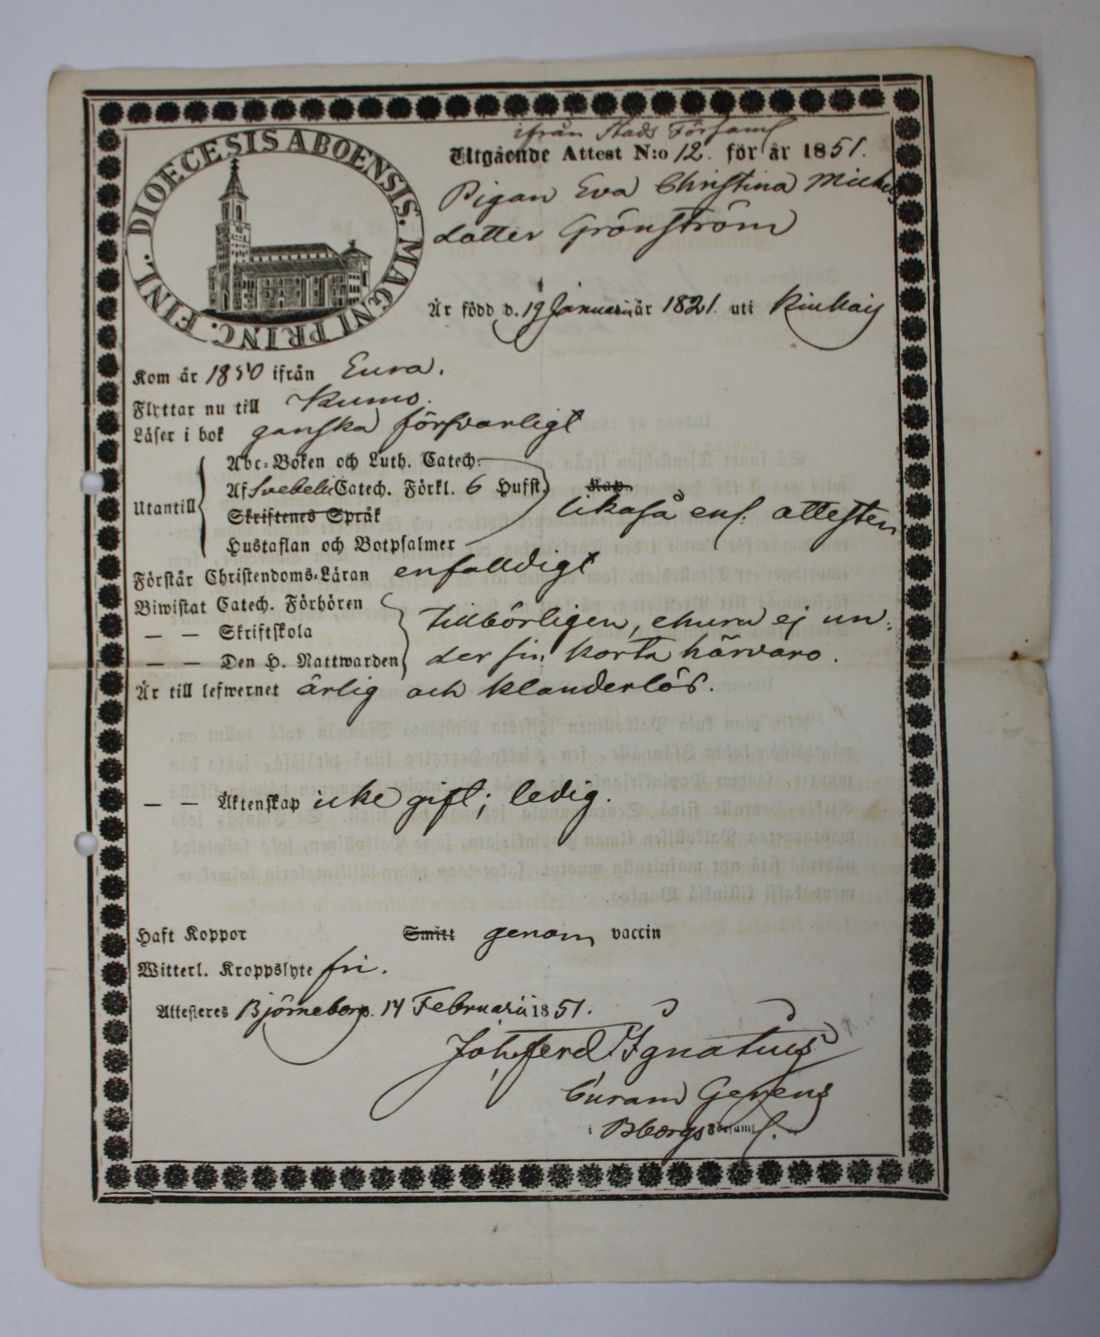 DIOECESIS ABOENSIS. MAGNI PRINC. FINL.
ifrån Stads Församl
Utgående Attest N:o 12. för år 1851.
Pigan Eva Christina Michels
dotter Grönström
Är född d. 19 Januari år 1821. uti Kiukais
Kom år 1850 ifrån Eura.
Flyttar nu till Kumo.
Läser i bok ganska försvarligt
Utantill
Abc-Boken och Luth. Catech.
Af Svebelii Catech. Förkl. 6 Hufst. Kap.
Skriftenes Språk
likaså enl. attesten
Hustaflan och Botpsalmer
Förstår Christendoms-Läran enfalldigt
Biwistat Catech. Förhören
— — Skriftskola tillbörligen, ehuru ej un-
— — Den H. Nattwarden der sin korta härvaro.
Är till lefwernet ärlig och klanderlös.
— — Äktenskap icke gift; ledig.
Haft Koppor Smitt genom vaccin
Witterl. Kroppslyte fri.
Attesteres Björneborg d. 14 Februarii 1851.
Joh. Ferd. Ignatius
Curam Gerens
i Bborgs Församl.